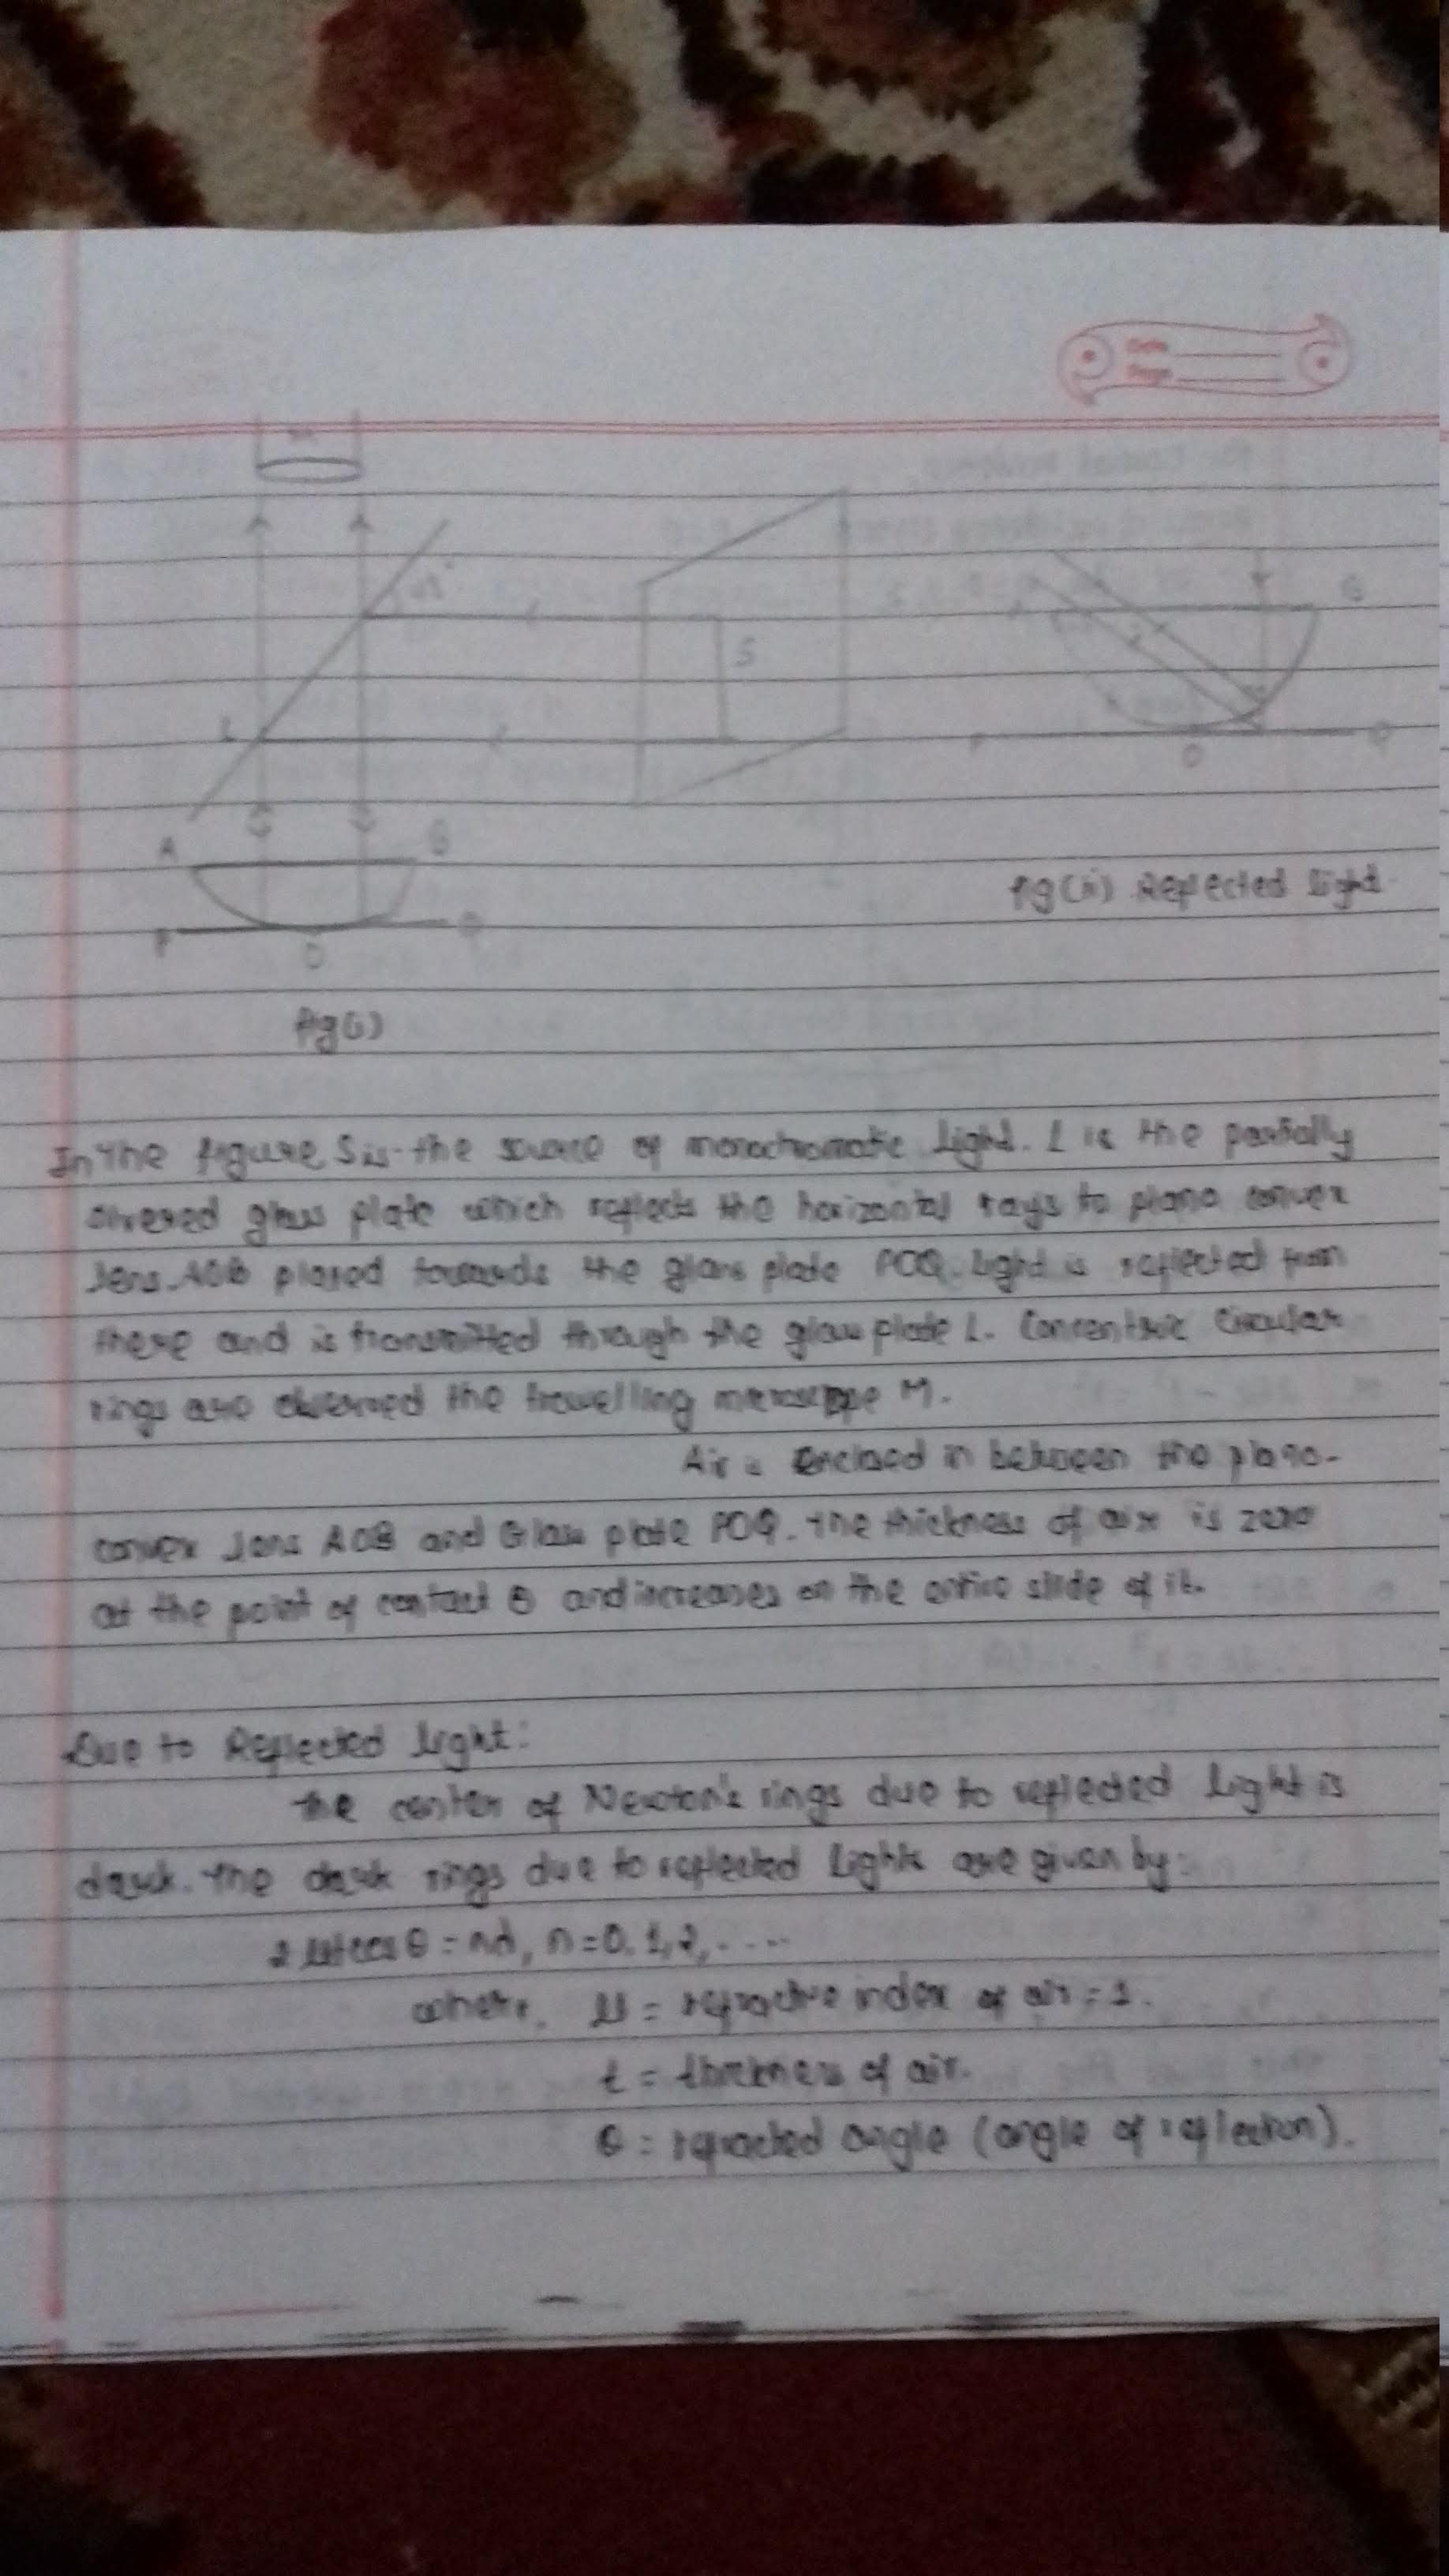 Date
Page
M
45°
S
L
A
B
P
O
Q
B
P
O
Q
fig(ii) Reflected light
fig(i)
In the figure, S is the source of monochromatic light. L is the partially
silvered glass plate which reflects the horizontal rays to plano convex
lens AOB placed towards the glass plate POQ. Light is reflected from
there and is transmitted through the glass plate L. Concentric Circular
rings are observed the travelling microscope M.
Air is Enclosed in between the plano-
convex lens AOB and Glass plate POQ. The thickness of air is zero
at the point of contact O and increases on the slide of it.
Due to Reflected light:
The center of Newton's rings due to reflected light is
dark. The dark rings due to reflected Light are given by:
2μt cosθ = nλ, n=0,1,2,....
where, μ = refractive index of air = 1.
t = thickness of air.
θ = refracted angle (angle of reflection).